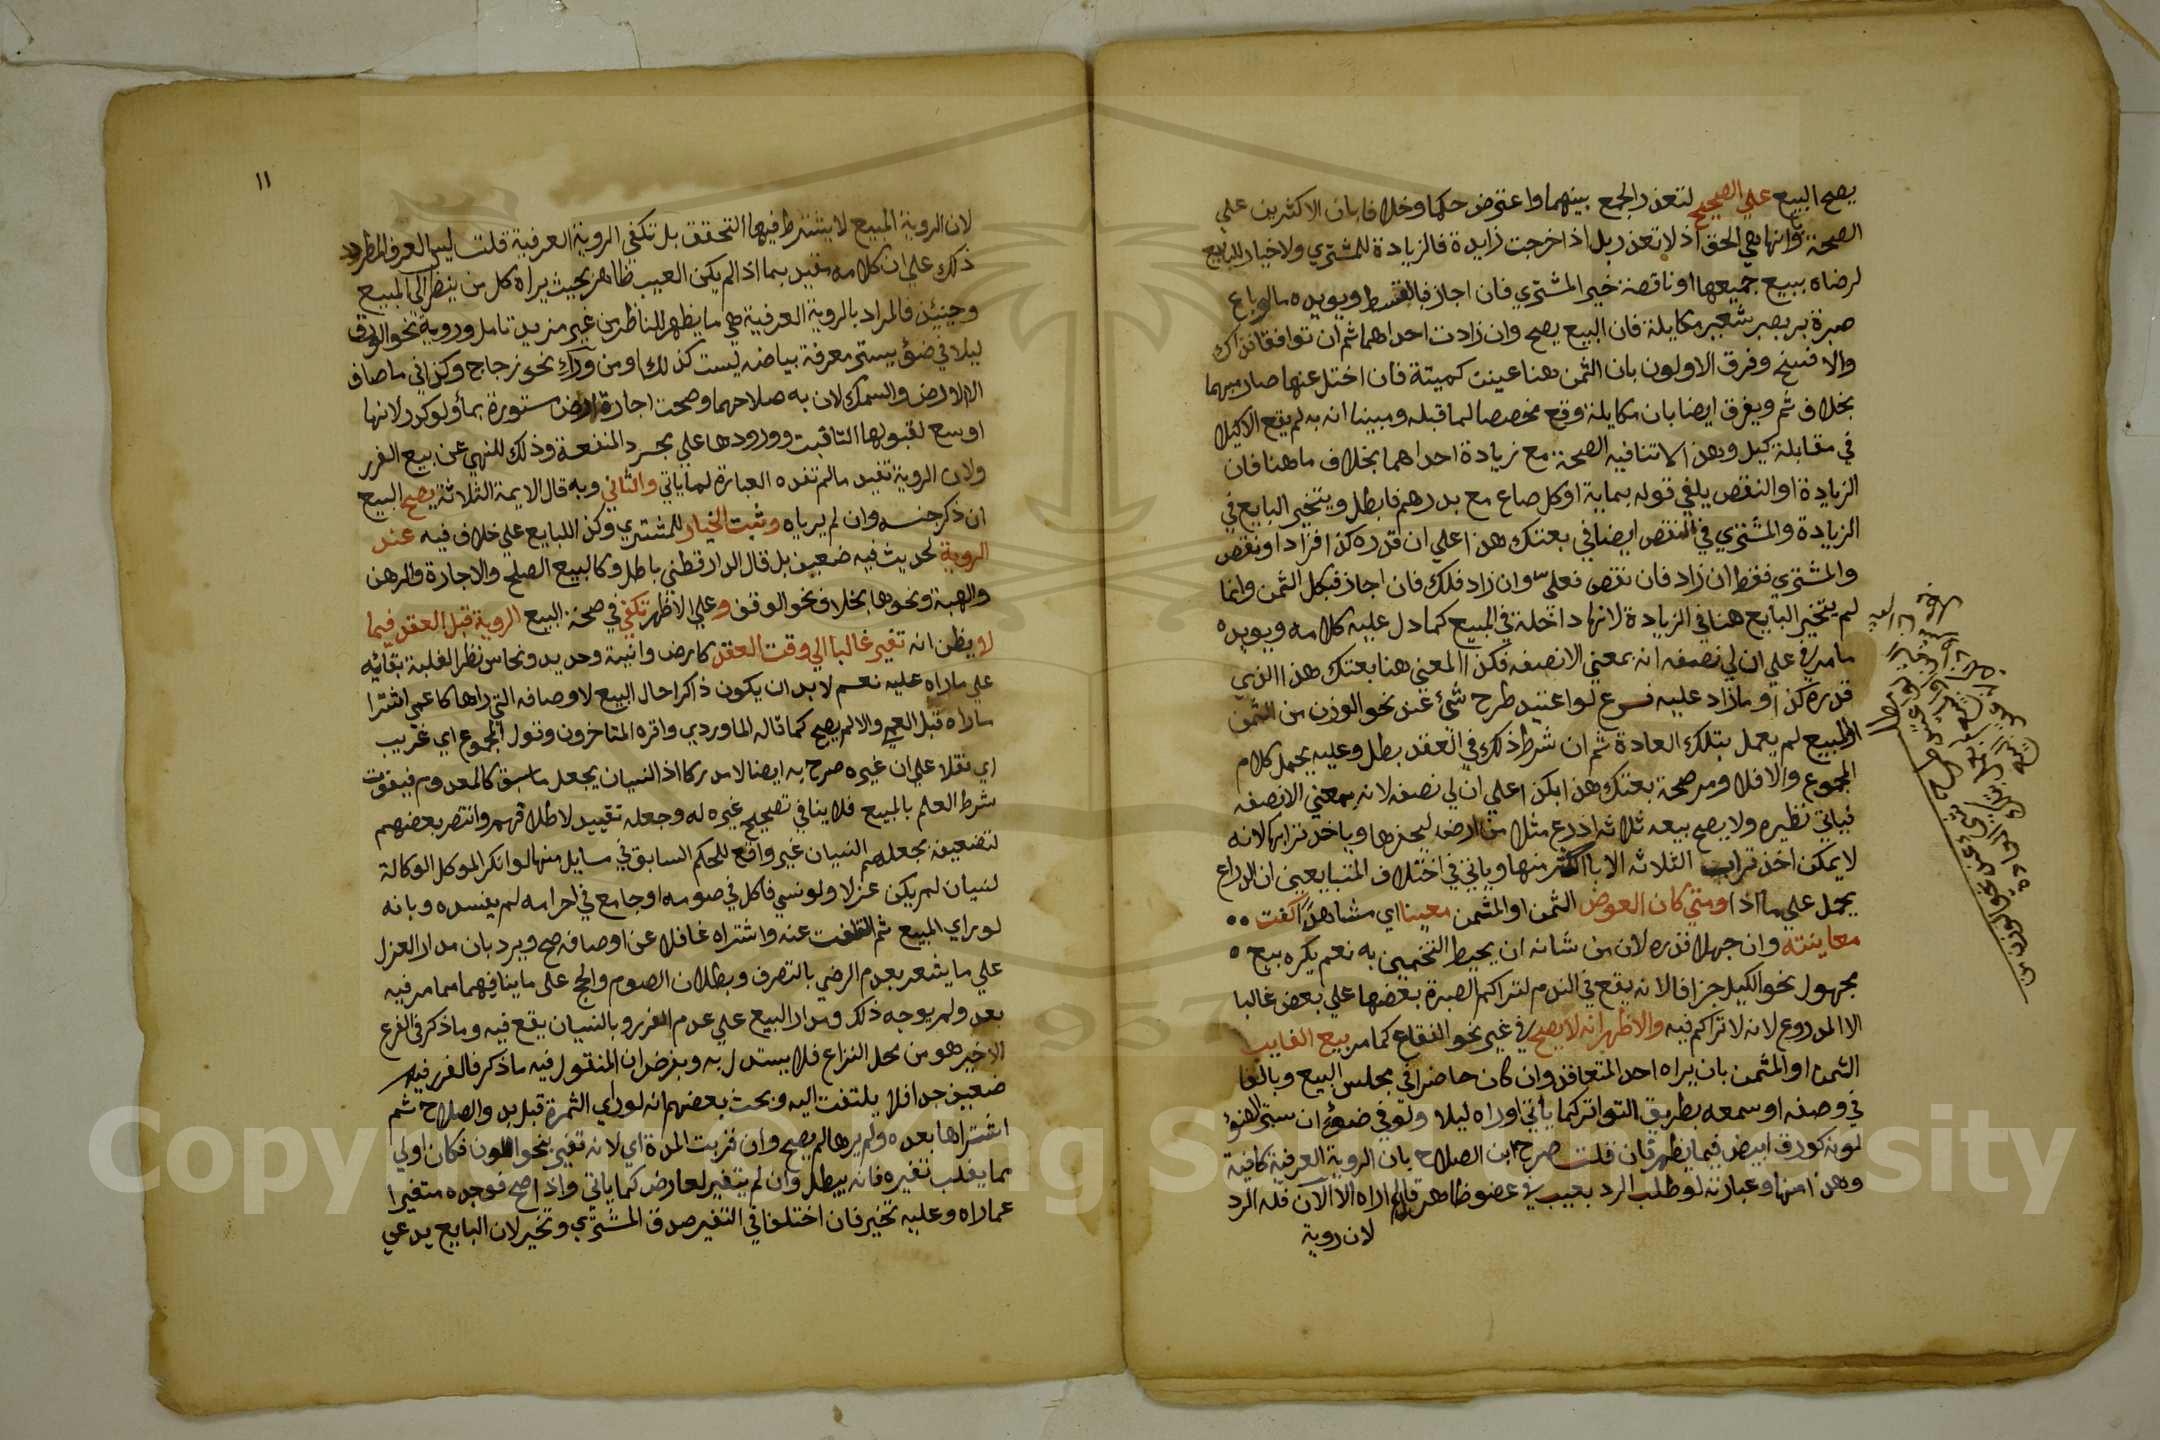 يصح البيع علي الصحيح لتعذر الجمع بينهما واعترض حكما وخلافا بان الاكثرين علي
الصحة وانها هي الحق اذ لا تعذر بل اذا خرجت زايدة فالزيادة للمشتري ولا خيار للبايع
لرضاه ببيع جميعها او ناقصة خير المشتري فان اجاز فبالقسط ويويده ما لو باع
صبرة بر بصبر شعير مكايلة فان البيع يصح وان زادت احداهما ثم ان توافقا فذاك
والا فسخ وفرق الاولون بان الثمن هنا عينت كميتة فان اختل عنها صار مبهما
بخلاف ثم ويفرق ايضا بان مكايلة وقع مخصصا لما قبله ومبينا انه به لم يقع الا كيلا
في مقابلة كيل وهذا لا تنافيه الصحة مع زيادة احداهما بخلاف ما هنا فان
الزيادة او النقص يلغي قوله بماية او كل صاع مع بدرهم فابطل ويتخير البايع في
الزيادة والمشتري في النقص ايضا في بعتك هذا علي ان قدره كذا فزاد او نقص
والمشتري فقط ان زاد فان نقص فعلي وان زاد فلك فان اجاز فبكل الثمن وانما
لم يتخير البايع هنا في الزيادة لانها داخلة في المبيع كما دل عليه كلامه ويويده
ما مر في علي ان لي نصفه انه بمعني الا نصفه فكذا المعني هنا بعتك هذا الذي
قدره كذا وما زاد عليه فرع لو اعتيد طرح شئ عند نحو الوزن من الثمن
او المبيع لم يعمل بتلك العادة ثم ان شرط ذلك في العقد بطل وعليه يحمل كلام
المجموع والا فلا ومر صحة بعتك هذا بكذا علي ان لي نصفه لانه بمعني الا نصفه
فياتي نظيره ولا يصح بيعه ثلاثه اذرع مثلا من ارض ليحفرها وياخذ ترابها لانه
لا يمكن اخذ تراب الثلاثه الا باكثر منها وياتي في اختلاف المتبايعين ان الذراع
يحمل علي ماذا ومتي كان العوض الثمن او المثمن معينا اي مشاهدا كفت
معاينته وان جهلا قدره لان من شانه ان يحيط التخمين به نعم يكره بيع
مجهول نحو الكيل جزافا لانه يقع في الندم لتراكم الصبرة بعضها علي بعض غالبا
لا المذروع لانه لا تراكم فيه والاظهر انه لا يصح في غير نحو الفقاع كما مر بيع الغايب
الثمن او المثمن بان يراه احد المتعاقدين وان كان حاضرا في مجلس البيع وبالغا
في وصفه او سمعه بطريق التواتر كما ياتي او راه ليلا ولو في ضوء ان ستر الضوء
لونه كورق ابيض فيما يظهر فان قلت صرح ابن الصلاح بان الروية العرفية كافية
وهذا منها وعبارته لو طلب الرد بعيب في عضو ظاهر قال لم اراه الا الآن فله الرد
لان روية
١١
لان الروية المبيع لا يشترط فيها التحقق بل تكفي الروية العرفية قلت ليس العرف المطرد
ذلك علي ان كلامه مقيد بما اذا لم يكن العيب ظاهر بحيث يراه كل من ينظر الي المبيع
وحينئذ فالمراد بالروية العرفية هي ما يظهر للناظر من غير مزيد تامل وروية نحو الورق
ليلا في ضوء يستر معرفة بياضه ليست كذلك او من وراء نحو زجاج وكذا في ماء صاف
الا الارض والسمك لان به صلاحهما وصحت اجارة ارض مستورة بماء ولو كدر لانها
اوسع لقبولها التاقيت وورودها علي مجرد المنفعة وذلك للنهي عن بيع الغرر
ولان الروية تفيد ما لم تفده العبارة لما ياتي والثاني وبه قال الايمة الثلاثة يصح البيع
ان ذكر جنسه وان لم يرياه وثبت الخيار للمشتري وكذا للبايع علي خلاف فيه عند
الروية لحديث فيه ضعيف بل قال الدارقطني باطل وكالبيع الصلح والاجارة والرهن
والهبة ونحوها بخلاف نحو الوقف وعلي الاظهر تكفي في صحة البيع الروية قبل العقد فيما
لا يظن انه تغير غالبا الي وقت العقد كارض وانية وحديد ونحاس نظرا لغلبة بقائه
علي ما راه عليه نعم لا بد ان يكون ذاكرا حال البيع لاوصافه التي راها كاعمي اشترا
ما راه قبل العمي والا لم يصح كما قاله الماوردي واقره المتاخرون وقول المجموع اي غريب
اي نقلا علي ان غيره صرح به ايضا لا مدركا اذ النسيان يجعل ما سبق كالمعدوم فيفوت
شرط العلم بالمبيع فلا ينافي تصحيح غيره له وجعله تقييد لاطلاقهم وانتصر بعضهم
لتضعيفه بجعلهم النسيان غير دافع للحكم السابق في مسايل منها لو انكر الموكل الوكالة
لنسيان لم يكن عزلا ولو نسي فاكل في صومه او جامع في احرامه لم يفسده وبانه
لو راي المبيع ثم التفت عنه واشتراه غافلا عن اوصافه صح ويرد بان مدار العزل
علي ما يشعر بعدم الرضي بالتصرف وبطلان الصوم والحج علي ما ينافيهما مما مر فيه
بعد ولم يوجد ذلك ومدار البيع علي عدم الغرر وبالنسيان يقع فيه وما ذكر في الفرع
الاخير هو من محل النزاع فلا يستدل به وبفرض ان المنقول فيه ما ذكر فالغرر فيه
ضعيف جدا فلا يلتفت اليه وبحث بعضهم انه لو راي الثمرة قبل بدو الصلاح ثم
اشتراها بعده ولم يرها لم يصح وان قربت المدة اي لانه تغير بنحو اللون فكان اولي
مما يغلب تغيره فانه يبطل وان لم يتغير لعارض كما ياتي واذا صح فوجده متغيرا
عما راه وعليه تخير فان اختلفا في التغير صدق المشتري وتخير لان البايع يدعي
Copyright © King Saud University
1957